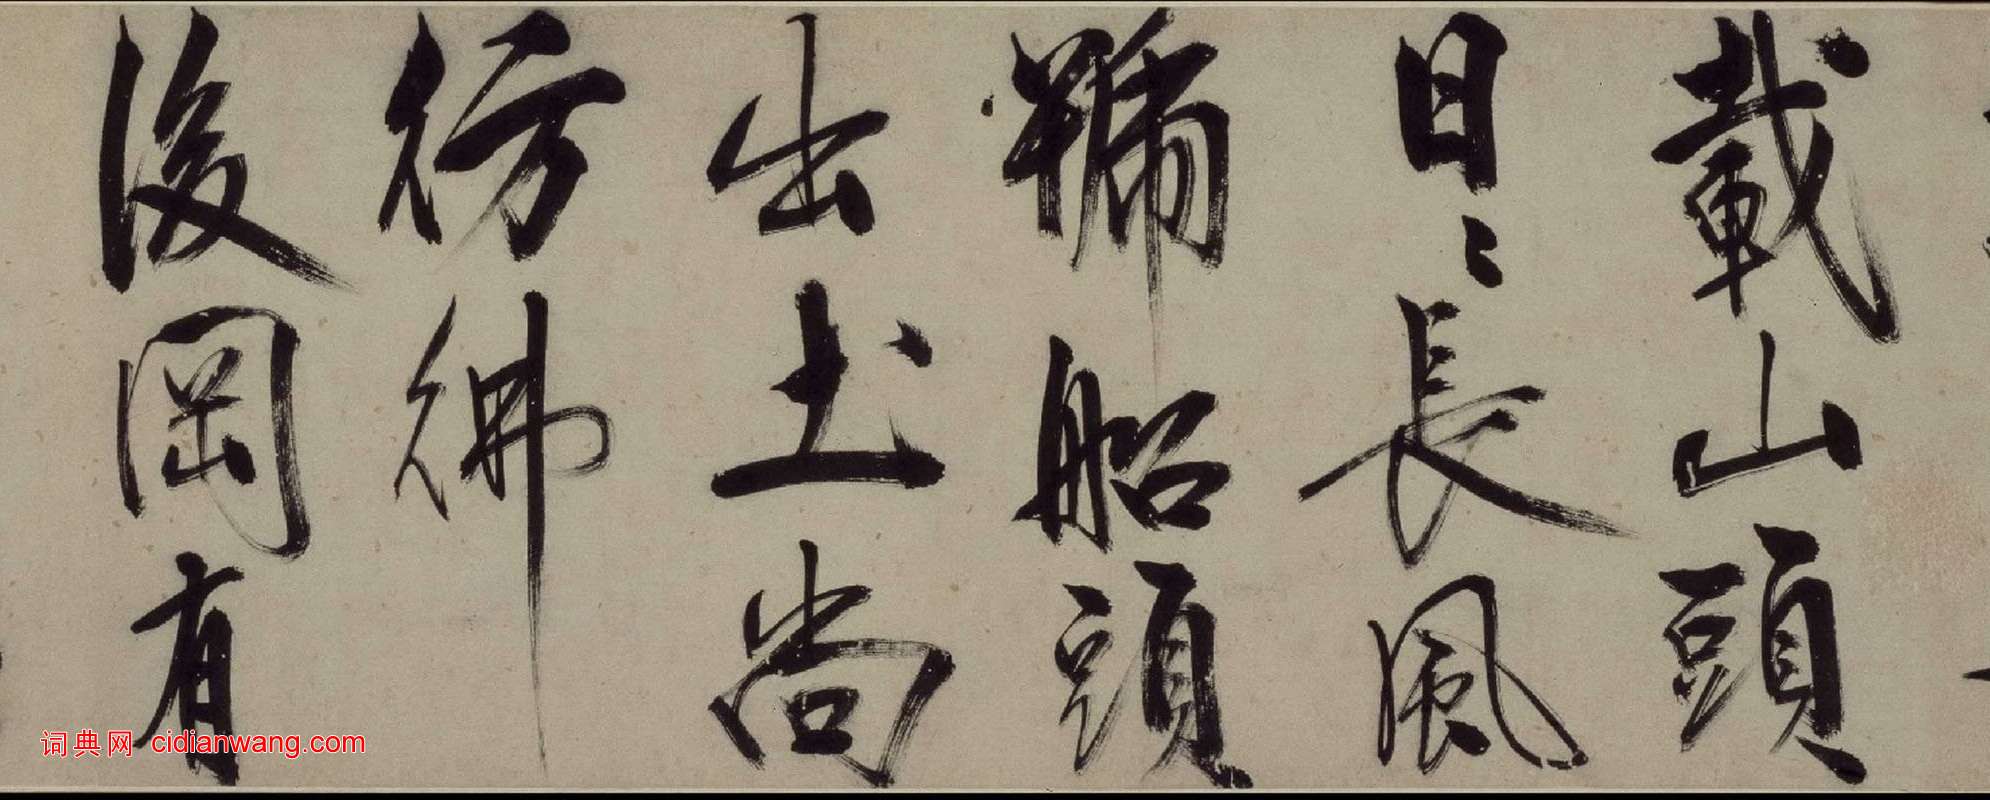 載山頭
日〻長風
船頭
出土尚
彷彿
後岡有
词典网 cidianwang.com